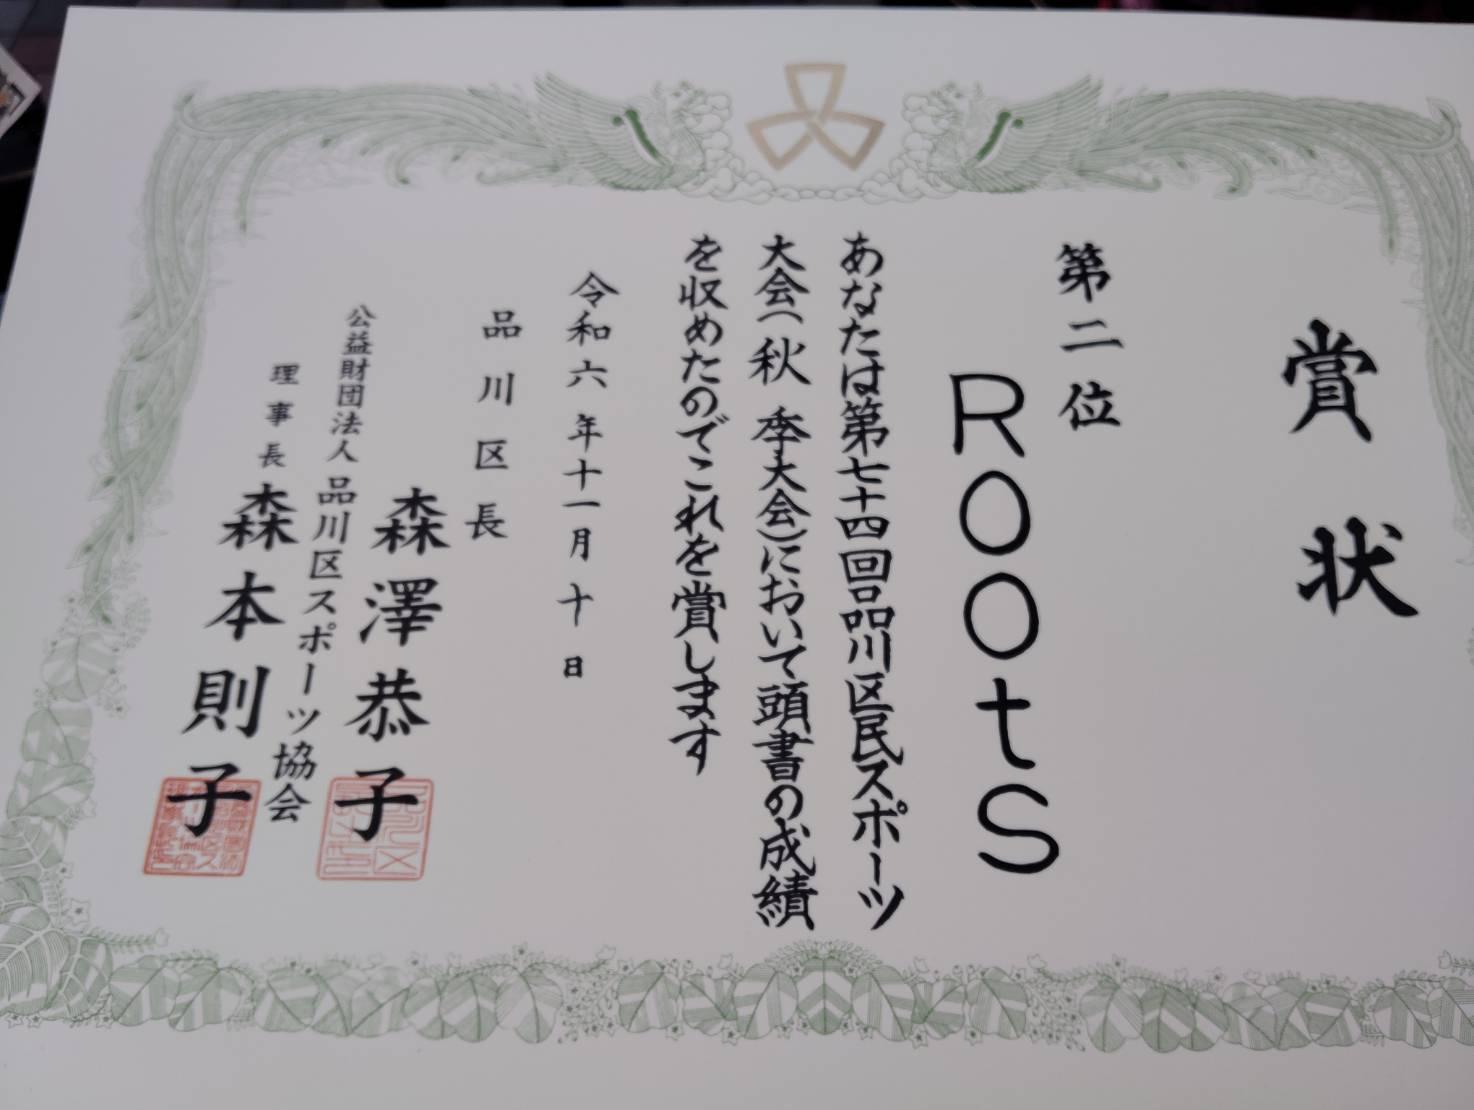 賞状
第二位
ROOtS
あなたは第七十四回品川区民スポーツ
大会(秋季大会)において頭書の成績
を収めたのでこれを賞します
令和六年十一月十日
品川区長
森澤恭子
公益財団法人品川区スポーツ協会
理事長
森本則子